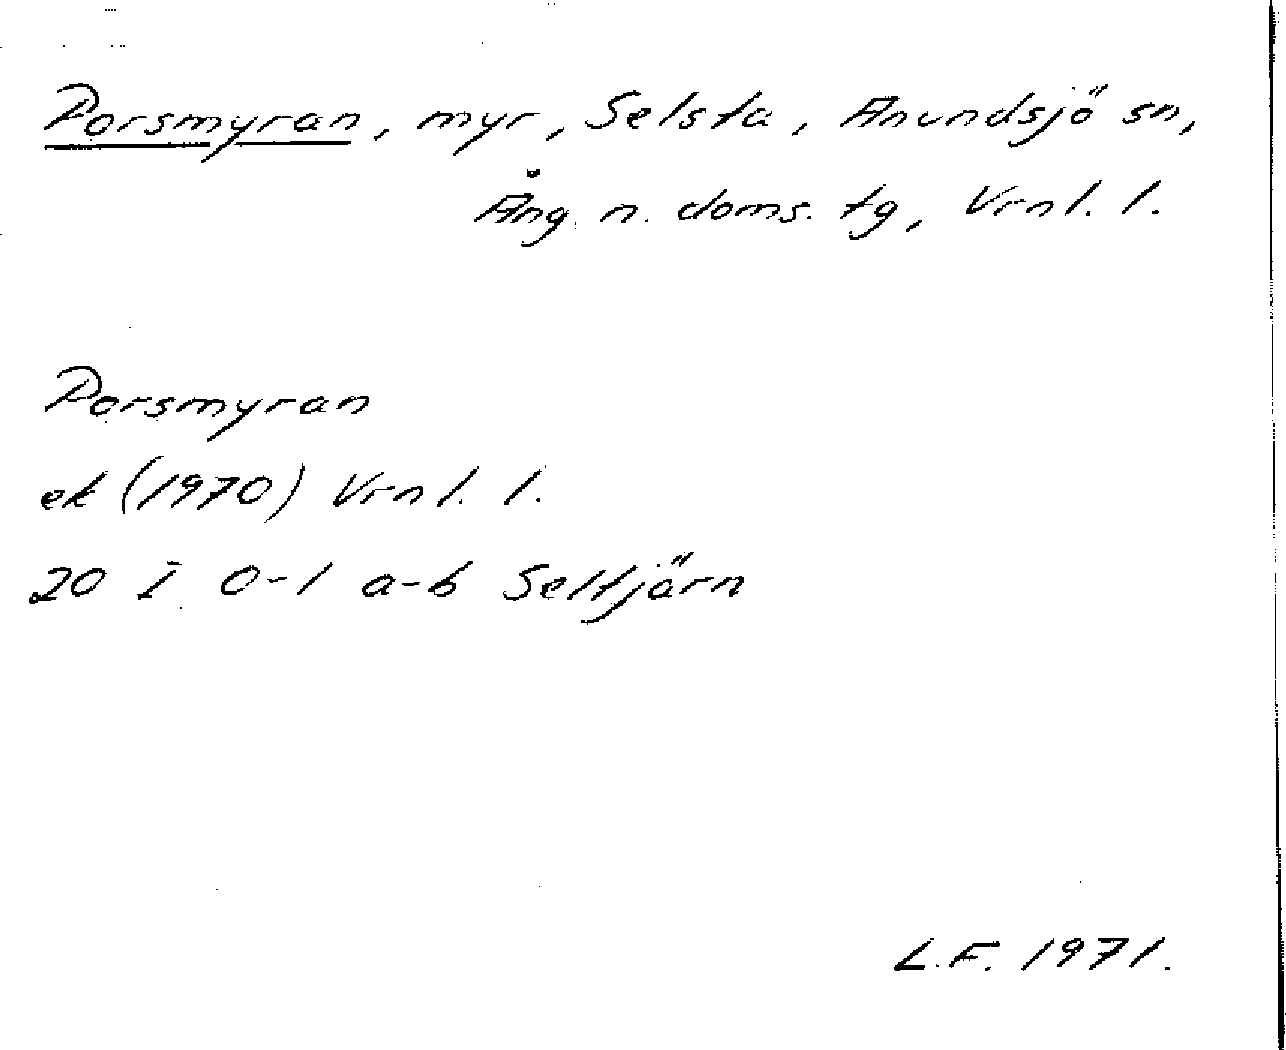 Porsmyran, myr, Selsta, Anundsjö sn,
Ång. n. doms. tg, Vrnl. l.
Porsmyran
ek (1970) Vrnl. l.
20 I 0-1 a-b Seltjärn
L.F. 1971.